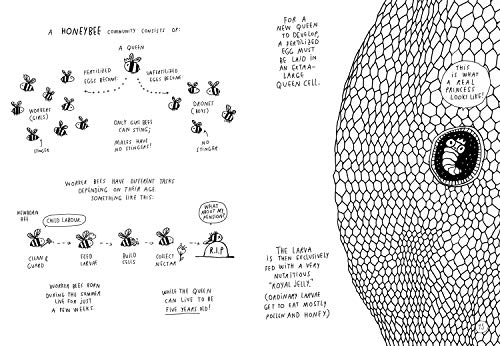 A HONEYBEE COMMUNITY CONSISTS OF:
A QUEEN
FERTILIZED
EGGS BECOME:
UNFERTILIZED
EGGS BECOME
WORKERS
(GIRLS)
DRONES
(BOYS)
ONLY GIRL BEES
CAN STING;
MALES HAVE
NO STINGERS!
STINGER
NO
STINGER
WORKER BEES HAVE DIFFERENT TASKS
DEPENDING ON THEIR AGE.
SOMETHING LIKE THIS:
NEWBORN
BEE
CHILD LABOUR
WHAT
ABOUT MY
PENSION?
R.I.P
CLEAN &
GUARD
FEED
LARVAE
BUILD
CELLS
COLLECT
NECTAR
WORKER BEES BORN
DURING THE SUMMER
LIVE FOR JUST
A FEW WEEKS.
WHILE THE QUEEN
CAN LIVE TO BE
FIVE YEARS OLD!
FOR A
NEW QUEEN
TO DEVELOP,
A FERTILIZED
EGG MUST
BE LAID IN
AN EXTRA-
LARGE
QUEEN CELL.
THIS
IS WHAT
A REAL
PRINCESS
LOOKS LIKE!
THE LARVA
IS THEN EXCLUSIVELY
FED WITH A VERY
NUTRITIOUS
"ROYAL JELLY."
(ORDINARY LARVAE
GET TO EAT MOSTLY
POLLEN AND HONEY)